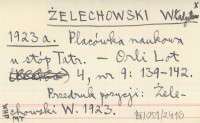 ŻELECHOWSKI Władysław
x
1923 a. Placówka naukowa
u stóp Tatr. — Orli Lot
4, nr 9: 139-142.
Przedruk pozycji: Żele-
chowski W. 1923.